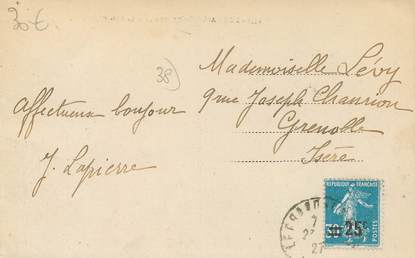 30€
38)
Mademoiselle Lévy
9 rue Joseph Chanrion
Grenoble
Isère
Affectueux bonjour
J. Lapierre
REPUBLIQUE FRANÇAISE
=25c
30
27